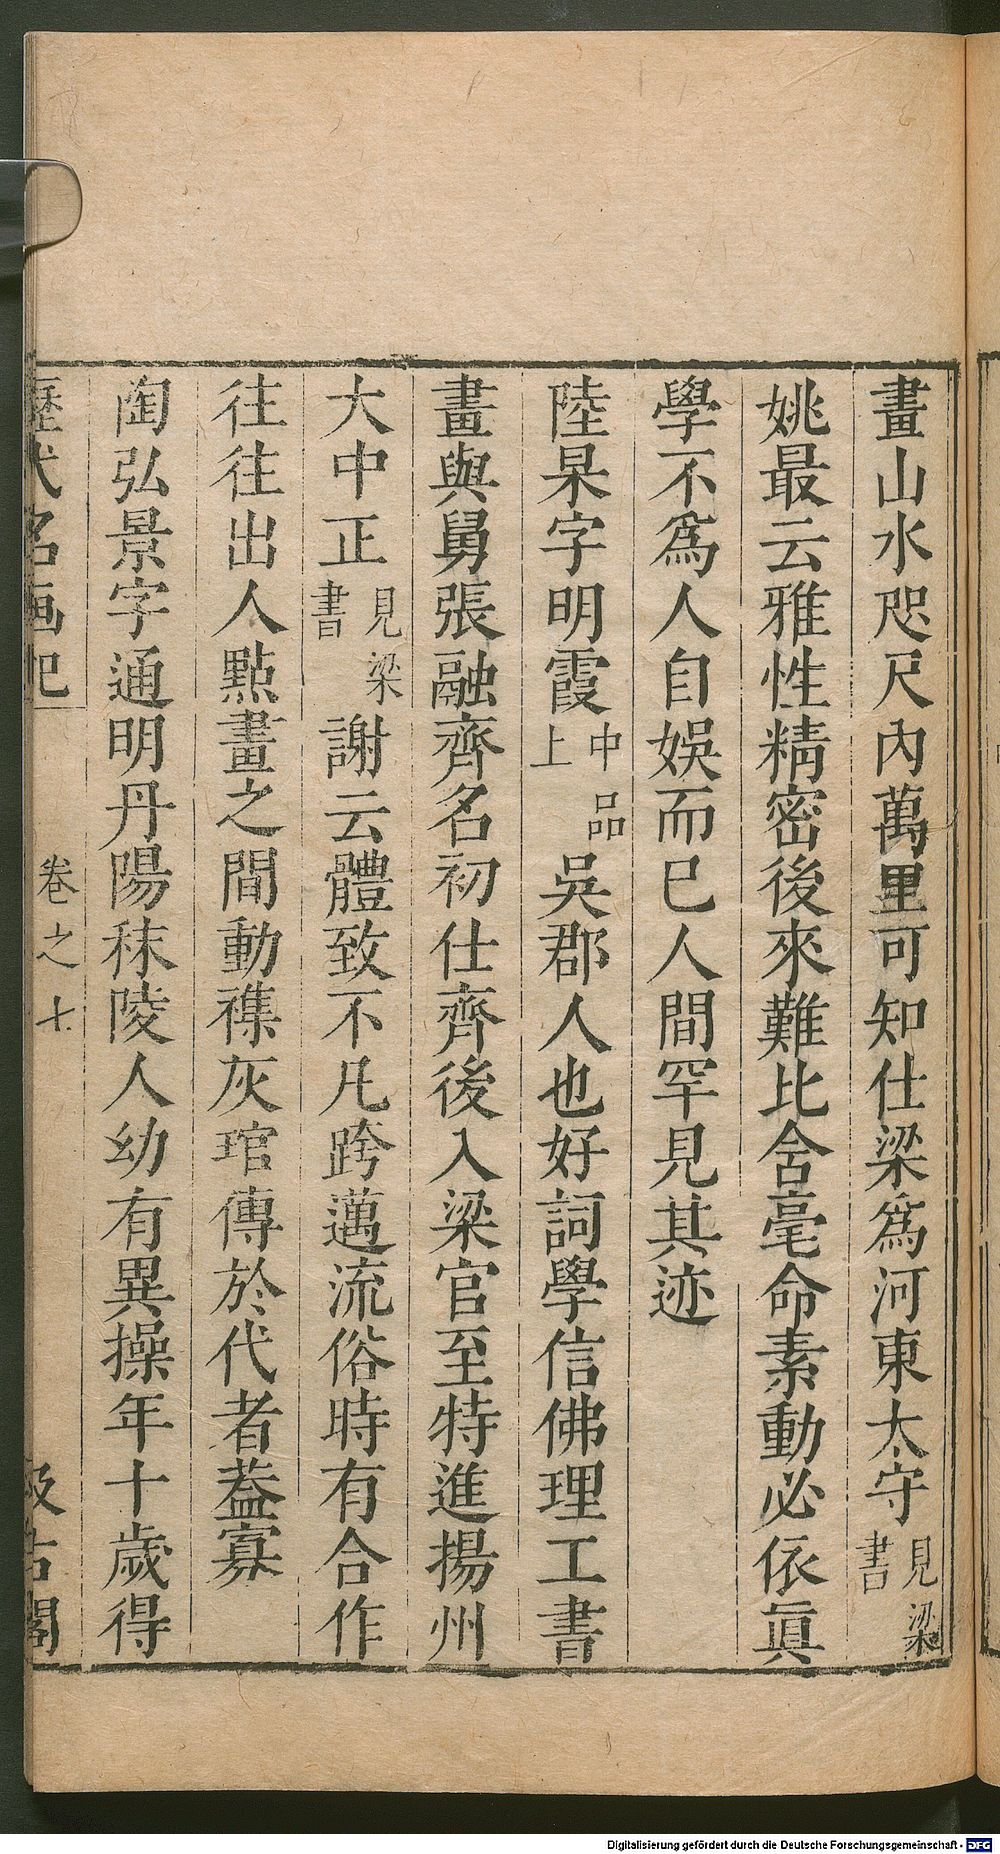 畫山水咫尺內萬里可知仕梁爲河東太守見梁書
姚最云雅性精密後來難比含毫命素動必依眞
學不爲人自娛而已人間罕見其迹
陸杲字明霞中品上吳郡人也好詞學信佛理工書
畫與舅張融齊名初仕齊後入梁官至特進揚州
大中正見梁書謝云體致不凡跨邁流俗時有合作
往往出人點畫之間動襍灰琯傳於代者葢寡
陶弘景字通明丹陽秣陵人幼有異操年十歲得
歷代名画記 卷之七 汲古閣
Digitalisierung gefördert durch die Deutsche Forschungsgemeinschaft - DFG